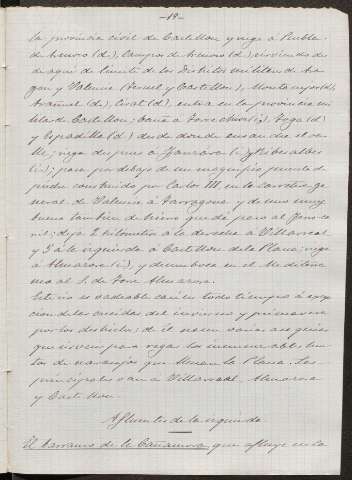 -19-
la provincia civil de Castellon y riega á Puebla
de Arenoso (d.), Campos de Arenoso (d.) sirviendo des-
de aquí de límite de los Distritos militares de Ara-
gon y Valencia (Teruel y Castellon), Montanejos (d.),
Arañuel (d.), Cirat (d.), entra en la provincia mi
litar de Castellon; baña á Torrechiva (i.), Toga (d.)
y Espadilla (d.) desde donde ensancha el va-
lle; riega despues á Fanzara (i.) y Ribesalbes
(i.); pasa por debajo de un magnífico puente de
piedra construido por Carlos III en la carretera ge-
neral de Valencia á Tarragona y de uno muy
bueno tambien de hierro que dá paso al ferro-ca-
rril; deja 2 kilometros á la derecha á Villarreal
y 5 á la izquierda á Castellon de la Plana; riega
á Almazora (i.), y desemboca en el Mediterrá-
neo al S. de Torre Almazora.
Este rio es vadeable casi en todos tiempos á excep-
cion de las crecidas del invierno y primavera
por los deshielos; de él nacen varias acequias
que sirven para regar los innumerables huer-
tos de naranjos que llenan la Plana. Las
principales van á Villarreal, Almazora
y Castellon.
Afluentes de la izquierda
El barranco de la que afluye en la